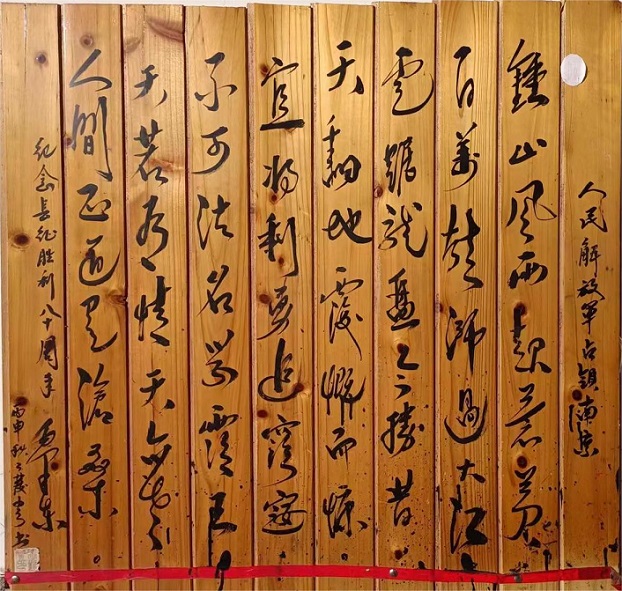 人民解放軍占領南京
鍾山風雨起蒼黃
百萬雄師過大江
虎踞龍盤今勝昔
天翻地覆慨而慷
宜將剩勇追窮寇
不可沽名學霸王
天若有情天亦老
人間正道是滄桑
紀念長征胜利八十周年 毛澤東
丙申秋 书